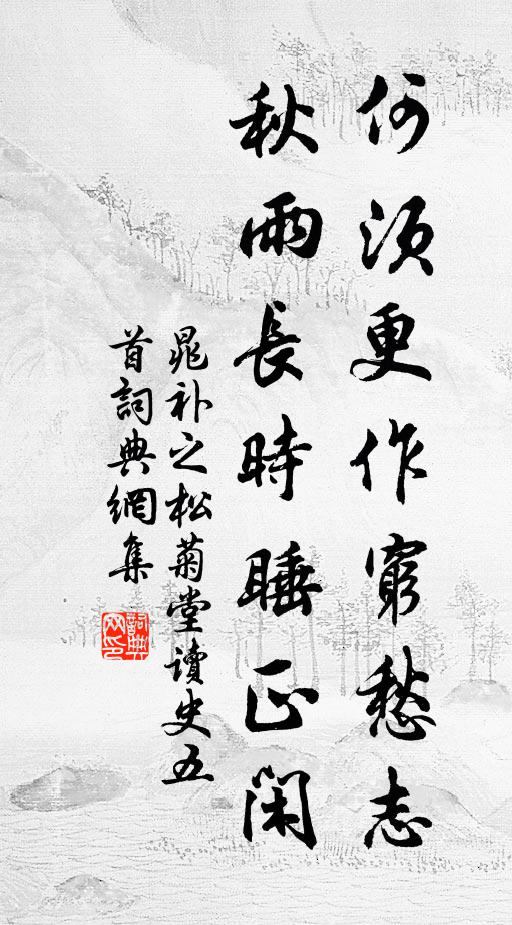 何須更作窮愁志
秋雨長時睡正閑
晁補之松菊堂讀史五
首詞典網集
詞典网印